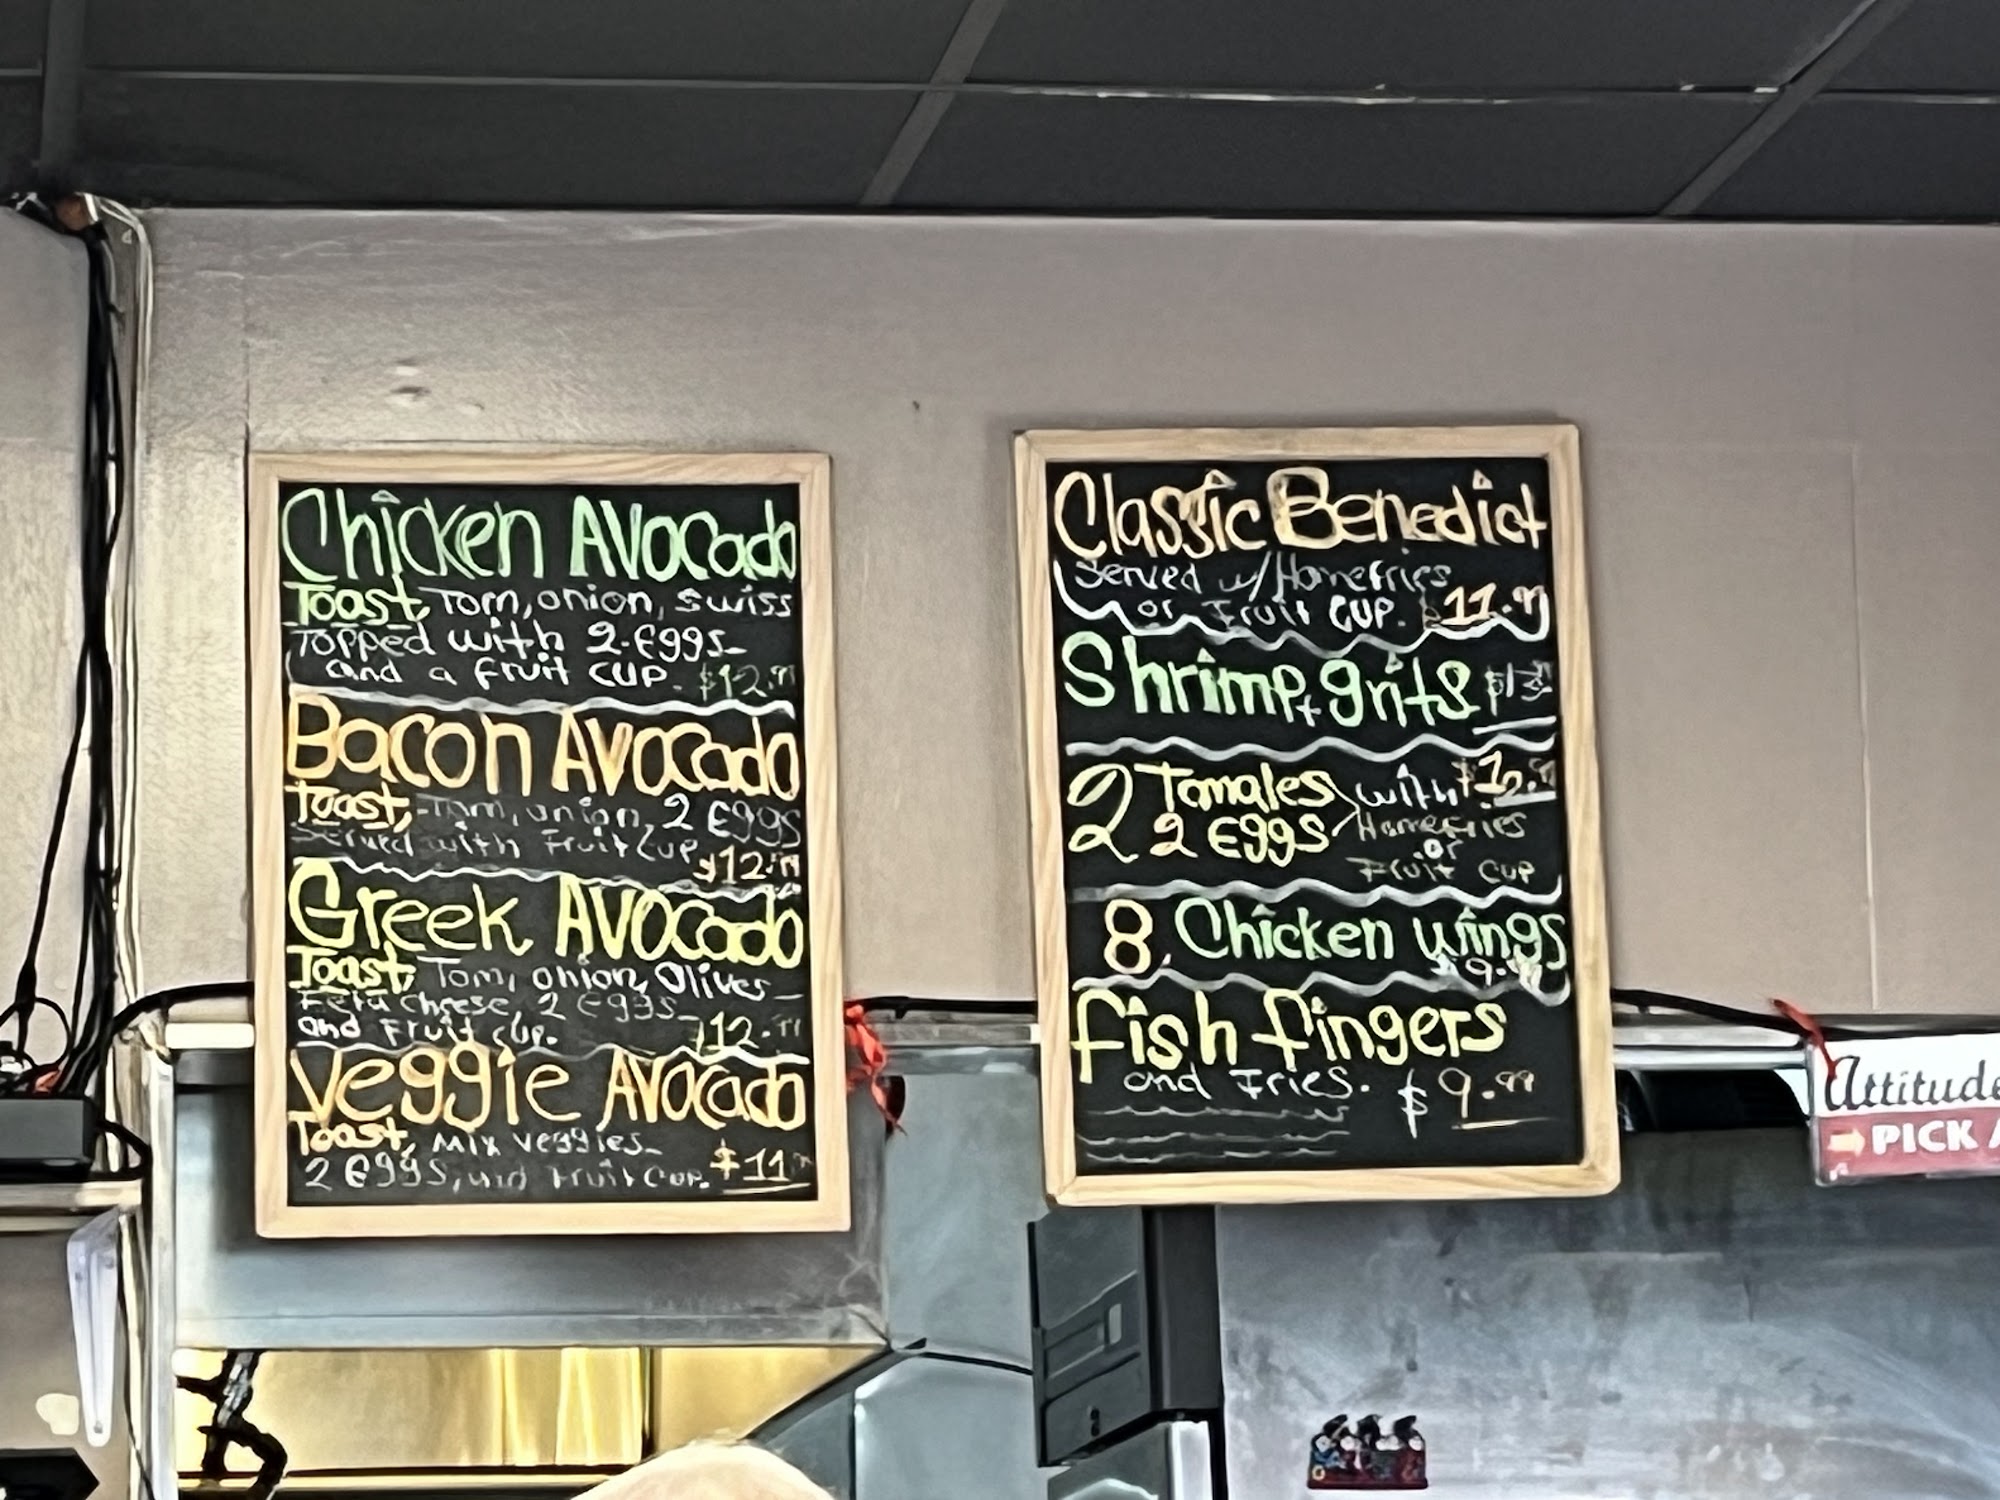 Chicken Avocado
Toast, Tom, onion, swiss
Topped with 2 Eggs
and a fruit cup. $12.99
Bacon Avocado
Toast, Tom, onion, 2 Eggs
Served with Fruit Cup $12.99
Greek Avocado
Toast, Tom, onion, Olives
Feta cheese, 2 Eggs
and Fruit cup. $12.99
Veggie Avocado
Toast, Mix veggies
2 Eggs, and Fruit Cup. $11.99
Classic Benedict
Served w/ Homefries
or Fruit CUP. $11.99
Shrimp + grits
2 Tamales with
2 Eggs Homefries
or
Fruit CUP
8 Chicken wings
9.99
fish fingers
and Fries. $9.99
Attitude
PICK A